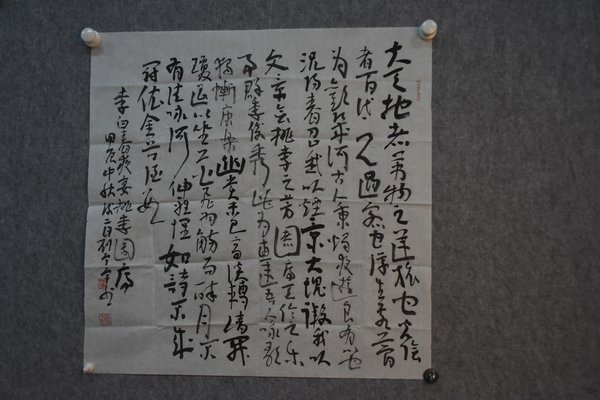 夫天地者萬物之逆旅也光陰
者百代之過客也浮生若夢
为歡幾何古人秉燭夜遊良有以也
況陽春召我以煙景大塊假我以
文章會桃李之芳園序天倫之樂
事群季俊秀皆為惠連吾人詠歌
獨慚康樂幽賞未已高談轉清開
瓊筵以坐花飛羽觴而醉月不
有佳詠何伸雅懷如詩不成
罰依金谷酒數
李白春夜宴桃李園序
甲辰中秋後二日